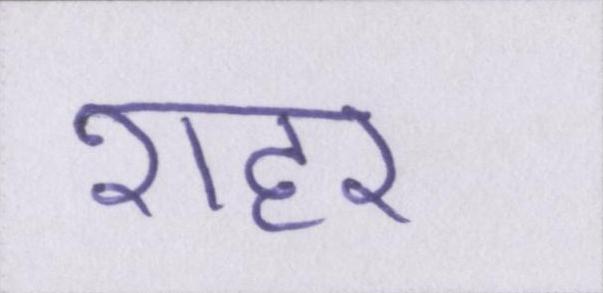 शहर